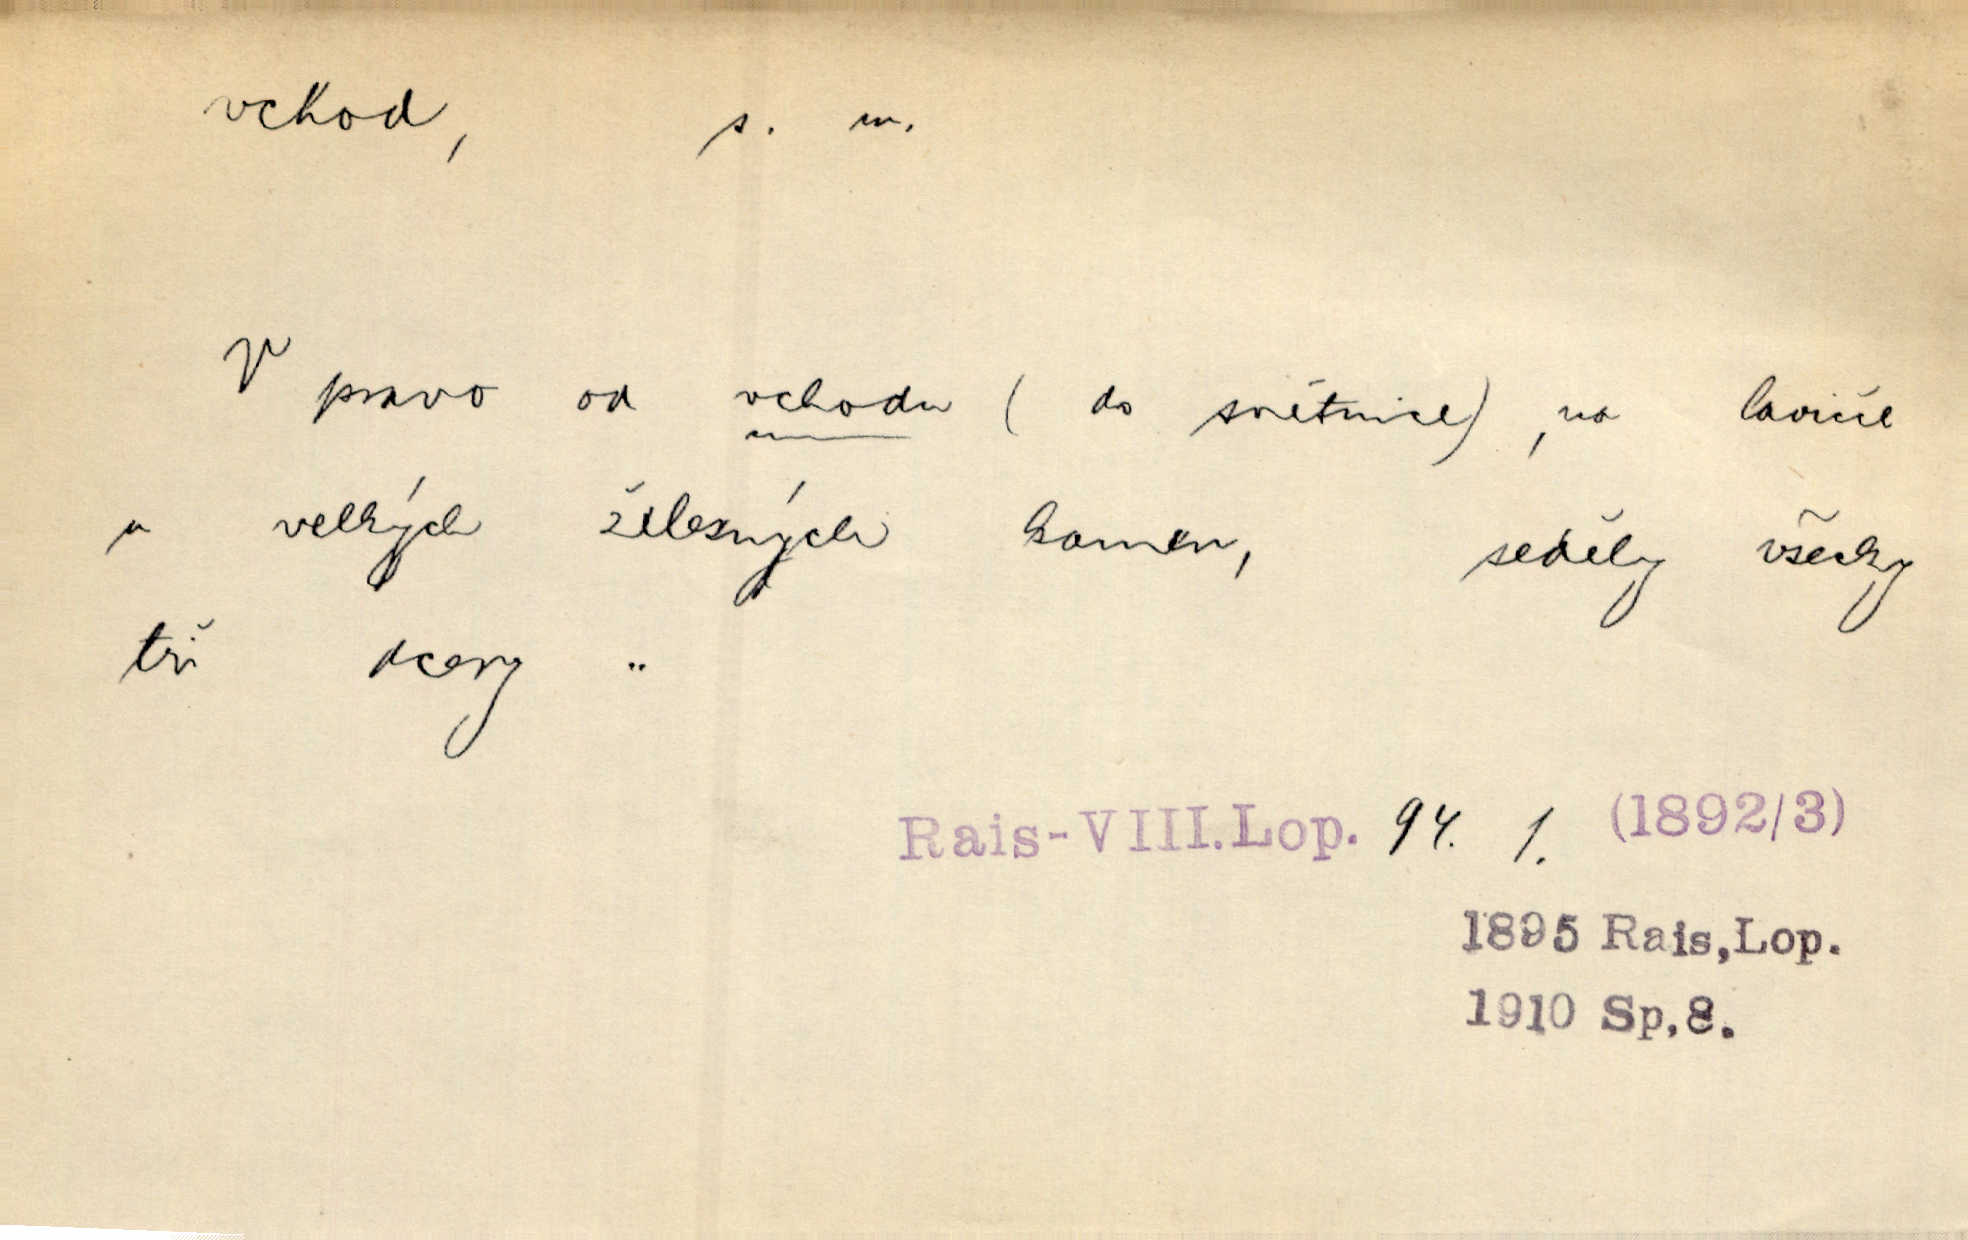 vchod, s. m.
V pravo od vchodu ( do světnice) , na lavičce
u velkých železných kamen, seděly všecky
tři dcery ..
Rais-VIII.Lop. 94. 1. (1892/3)
1895 Rais,Lop.
1910 Sp,8.